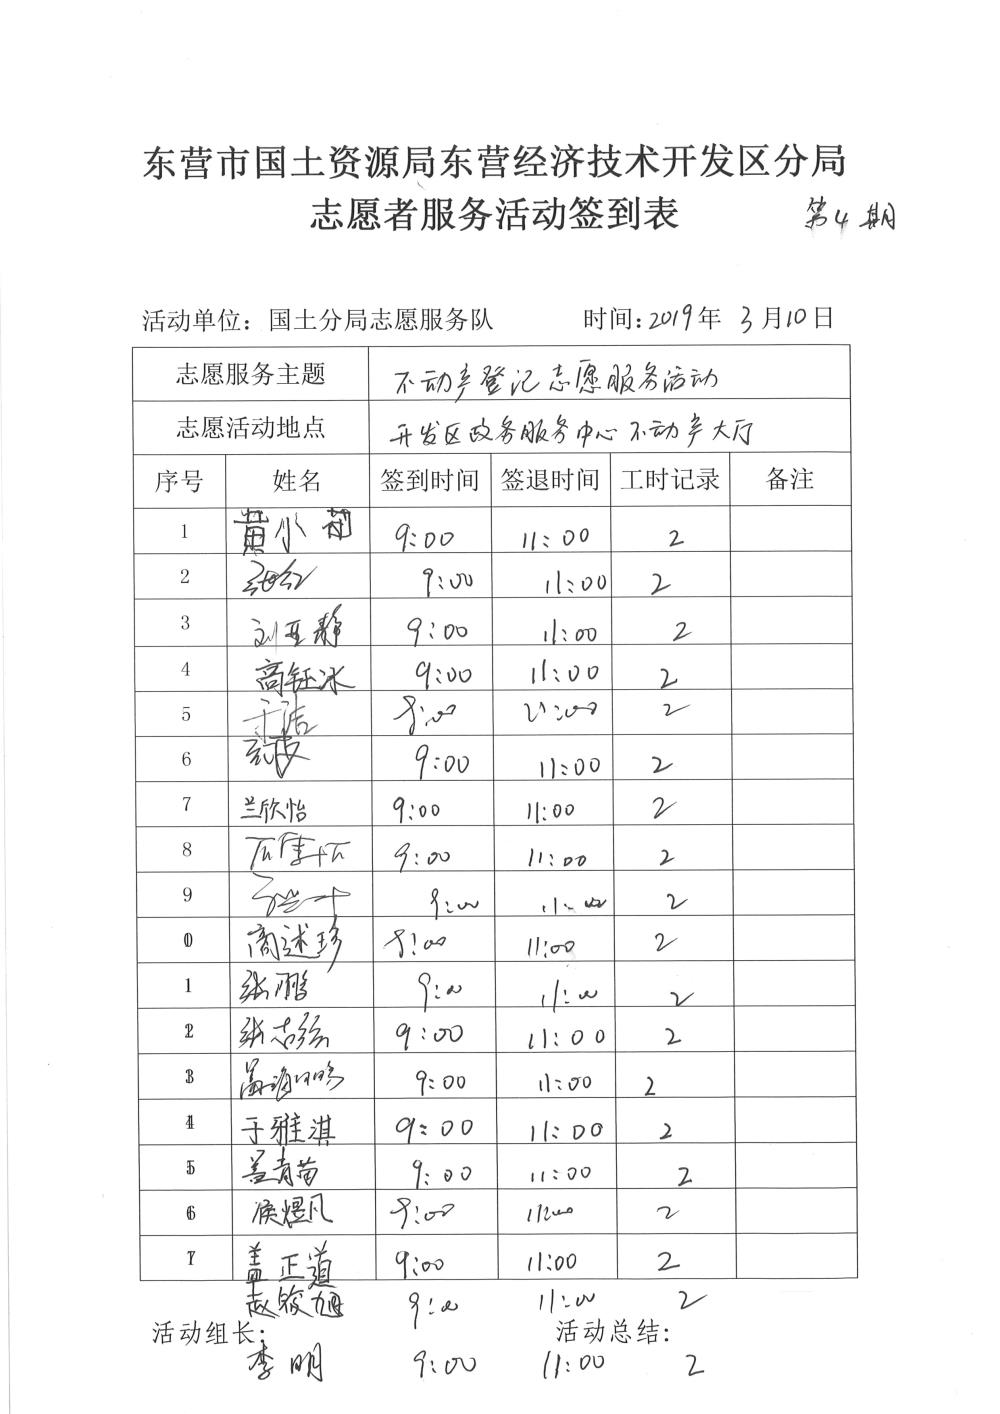 东营市国土资源局东营经济技术开发区分局
志愿者服务活动签到表 第4期
活动单位：国土分局志愿服务队 时间：2019年 3月10日
志愿服务主题 不动产登记志愿服务活动
志愿活动地点 开发区政务服务中心不动产大厅
序号 姓名 签到时间 签退时间 工时记录 备注
1 黄小莉 9:00 11:00 2
2 9:00 11:00 2
3 刘亚静 9:00 11:00 2
4 商钰冰 9:00 11:00 2
5 于洁 9:00 11:00 2
6 9:00 11:00 2
7 兰欣怡 9:00 11:00 2
8 9:00 11:00 2
9 9:00 11:00 2
10 商述珍 9:00 11:00 2
11 张鹏 9:00 11:00 2
12 张志强 9:00 11:00 2
13 9:00 11:00 2
14 于雅淇 9:00 11:00 2
15 盖青苗 9:00 11:00 2
16 侯煜凡 9:00 11:00 2
17 盖正道 9:00 11:00 2
赵皎旭 9:00 11:00 2
活动组长： 活动总结：
李明 9:00 11:00 2